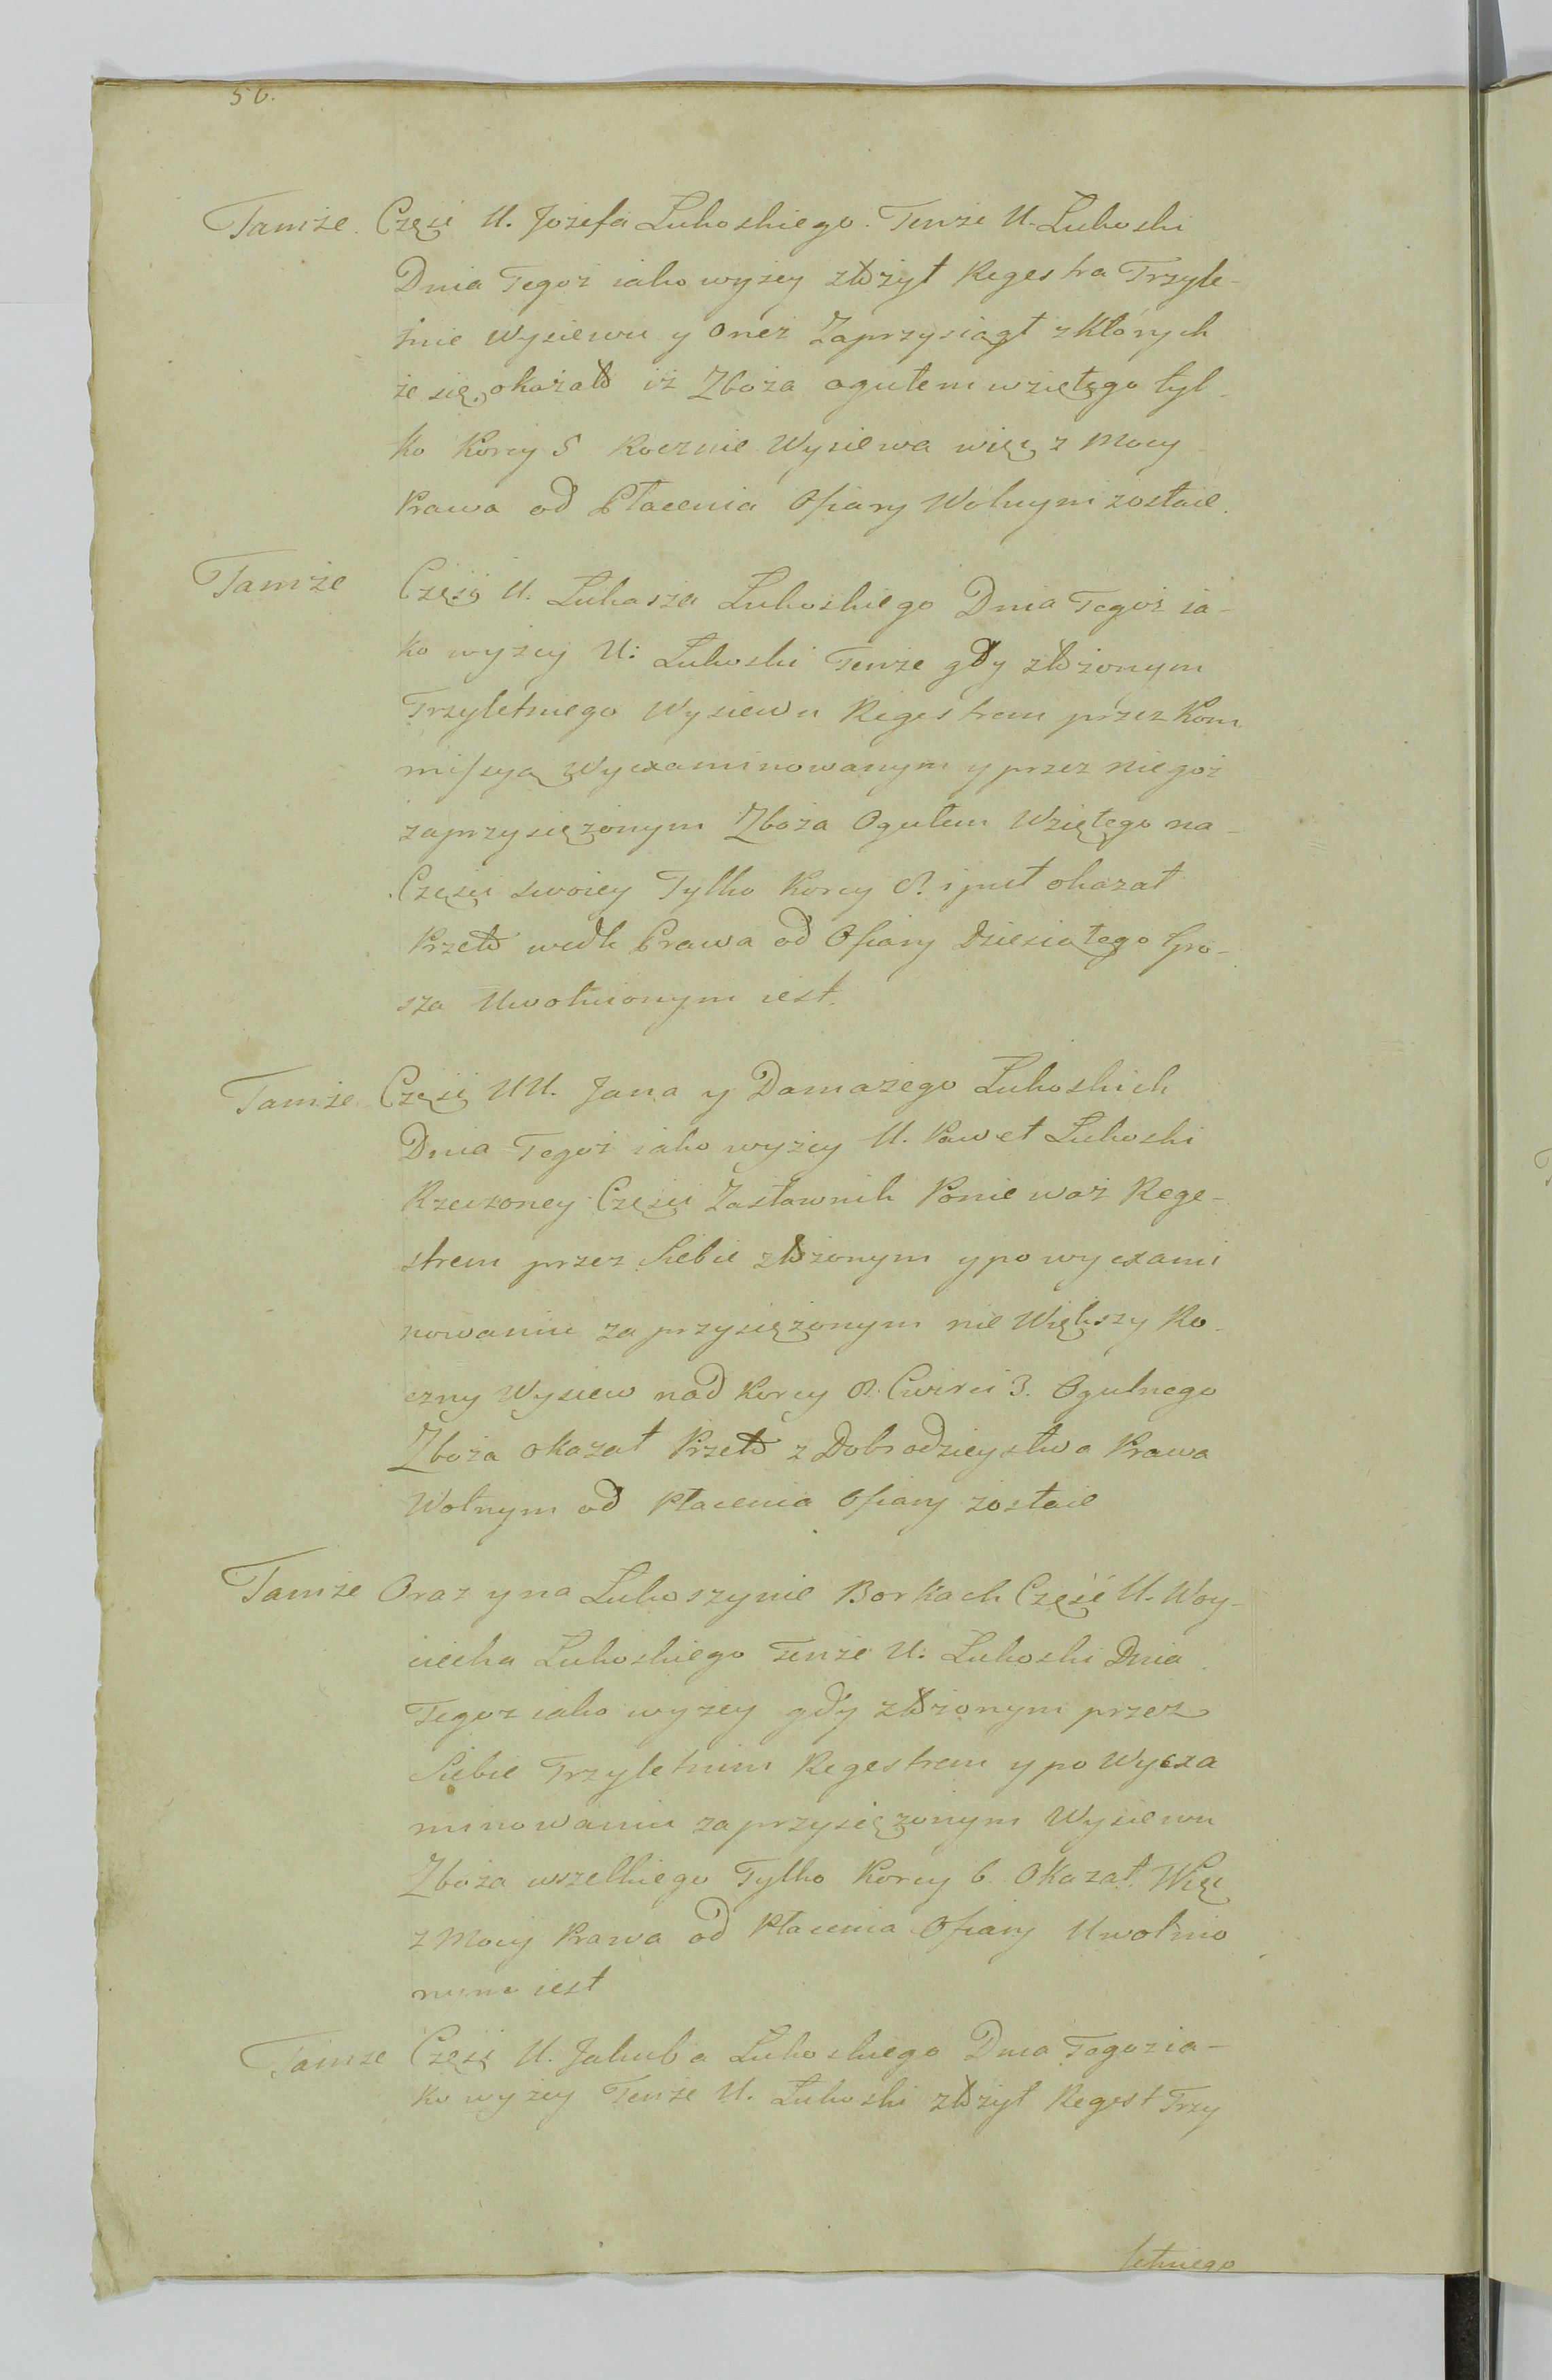 56.
Tamże. Częsć U. Jozefa Łukoskiego. Tenże U. Łukoski
Dnia Tegoż iako wyżey złożył Regestra Trzyle-
tnie Wysiewu y Oneż Zaprzysiągł z których
że się okazało iż Zboża ogułem wziętego tyl-
ko Korcy 5 Rocznie Wysiewa więc z Mocy
Prawa od Płacenia Ofiary Wolnym zostaie.
Tamże Częsć U. Łukasza Łukoskiego Dnia Tegoż ia-
ko wyżey U: Łukoski Tenże gdy złożonym
Trzyletniego Wysiewu Regestrem przez Kom
missyą Wyexaminowanym y przez niegoż
zaprzysiężonym Zboża Ogułem Wziętego na
Częsci swoiey Tylko Korcy 8. i puł okazał
Przeto wedle Prawa od Ofiary Dziesiątego Gro-
sza Uwolnionym iest.
Tamże Częsć UU. Jana y Damazego Łukoskich
Dnia Tegoż iako wyżey U. Paweł Łukoski
Rzeczoney Częsci Zastawnik Ponieważ Rege-
strem przez Siebie złożonym y po wyexami
nowaniu zaprzysiężonym nie Większy Ro-
czny Wysiew nad Korcy 8. Cwierci 3. Ogulnego
Zboża okazał Przeto z Dobrodzieystwa Prawa
Wolnym od Płacenia Ofiary zostaie
Tamże Oraz y na Łukoszynie Borkach Częsć U. Woy-
ciecha Łukoskiego Tenże U: Łukoski Dnia
Tegoż iako wyżey gdy złożonym przez
Siebie Trzyletnim Regestrem y po Wyexa
minowaniu zaprzysiężonym Wysiewu
Zboża wszelkiego Tylko Korcy 6. Okazał. Więc
z Mocy Prawa od Płacenia Ofiary Uwolnio
nym iest
Tamże Częsć U. Jakuba Łukoskiego Dnia Tegoż ia-
ko wyżey Tenże U. Łukoski złożył Regest Trzy
letniego